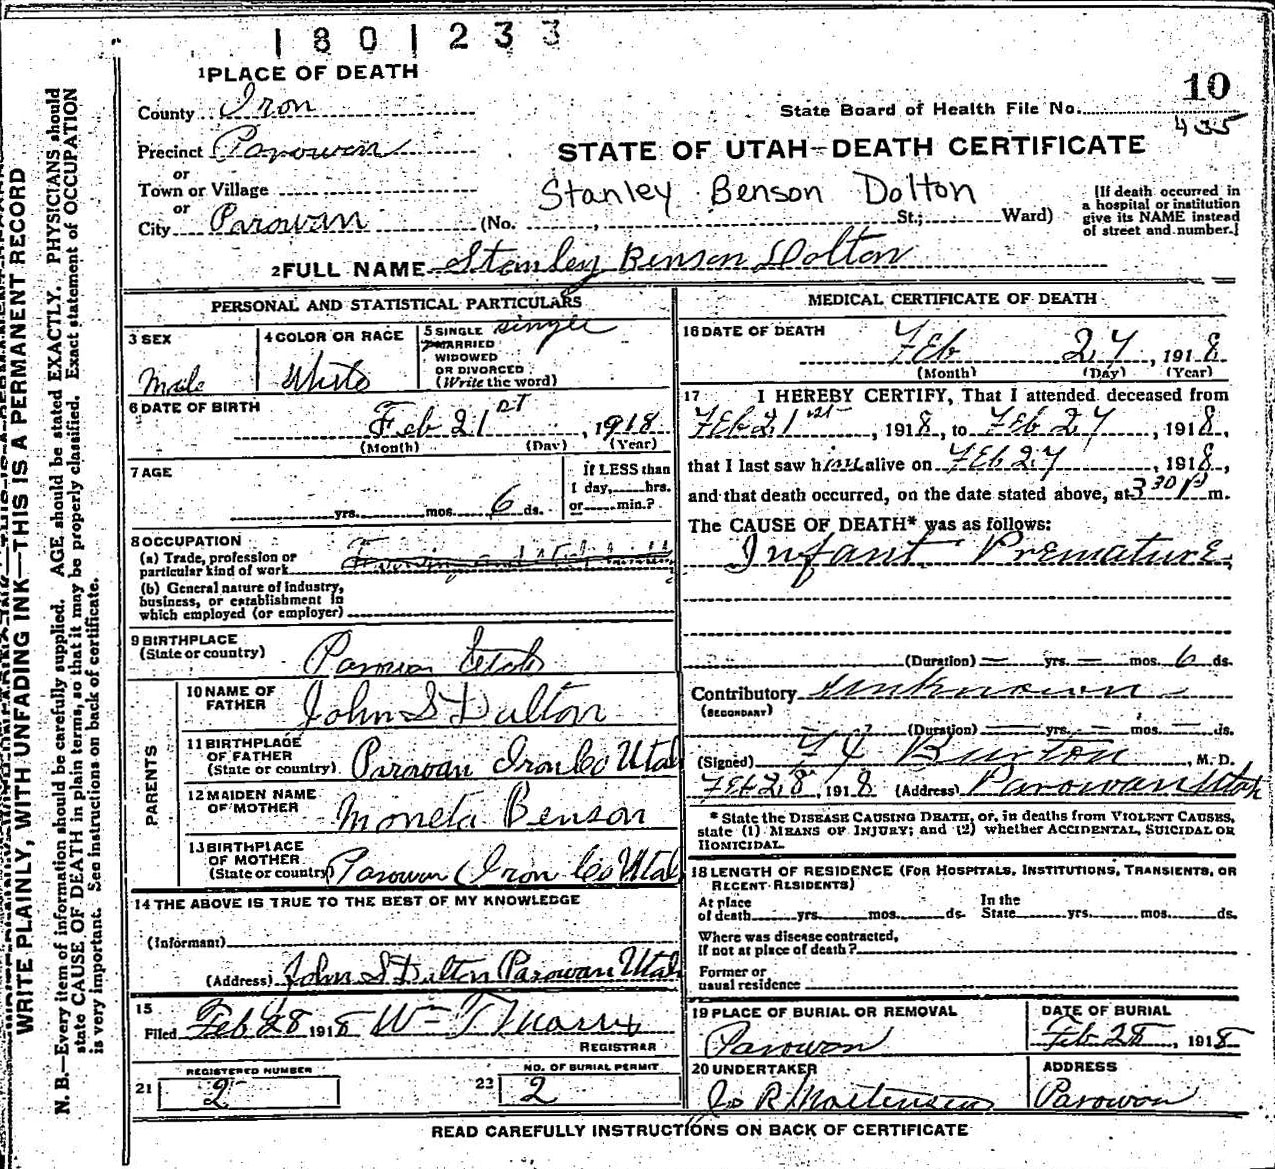 1801233
1 PLACE OF DEATH
10
County Iron
State Board of Health File No.
435
Precinct Parowan
STATE OF UTAH—DEATH CERTIFICATE
or
Town or Village
Stanley Benson Dolton
or
City Parowan (No. St.; Ward)
[If death occurred in
a hospital or institution
give its NAME instead
of street and number.]
2 FULL NAME Stanley Benson Dolton
PERSONAL AND STATISTICAL PARTICULARS
3 SEX
Male
4 COLOR OR RACE
White
5 SINGLE single
MARRIED
WIDOWED
OR DIVORCED
(Write the word)
6 DATE OF BIRTH
Feb 21st, 1918
(Month) (Day) (Year)
7 AGE
yrs. mos. 6 ds.
if LESS than
1 day, hrs.
or min.?
8 OCCUPATION
(a) Trade, profession or
particular kind of work
(b) General nature of industry,
business, or establishment in
which employed (or employer)
9 BIRTHPLACE
(State or country)
Parowan Utah
PARENTS
10 NAME OF
FATHER
John S Dalton
11 BIRTHPLACE
OF FATHER
(State or country) Parowan Iron Co Utah
12 MAIDEN NAME
OF MOTHER
Moneta Benson
13 BIRTHPLACE
OF MOTHER
(State or country) Parowan Iron Co Utah
14 THE ABOVE IS TRUE TO THE BEST OF MY KNOWLEDGE
(Informant)
(Address) John S Dalton Parowan Utah
15
Filed Feb 28 1918 Wm T
REGISTRAR
REGISTERED NUMBER
21 2
NO. OF BURIAL PERMIT
22 2
MEDICAL CERTIFICATE OF DEATH
16 DATE OF DEATH
Feb 27, 1918
(Month) (Day) (Year)
17 I HEREBY CERTIFY, That I attended deceased from
Feb 21st, 1918, to Feb 27, 1918,
that I last saw him alive on Feb 27, 1918,
and that death occurred, on the date stated above, at 3 30 P m.
The CAUSE OF DEATH* was as follows:
Infant Premature
(Duration) — yrs. — mos. 6 ds.
Contributory unknown
(SECONDARY)
(Duration) — yrs. — mos. — ds.
(Signed) Burton, M. D.
Feb 28, 1918 (Address) Parowan Utah
* State the DISEASE CAUSING DEATH, or, in deaths from VIOLENT CAUSES,
state (1) MEANS OF INJURY; and (2) whether ACCIDENTAL, SUICIDAL OR
HOMICIDAL.
18 LENGTH OF RESIDENCE (FOR HOSPITALS, INSTITUTIONS, TRANSIENTS, OR
RECENT RESIDENTS)
At place
of death yrs. mos. ds.
In the
State yrs. mos. ds.
Where was disease contracted,
if not at place of death?
Former or
usual residence
19 PLACE OF BURIAL OR REMOVAL
Parowan
DATE OF BURIAL
Feb 28, 1918
20 UNDERTAKER
R Mortensen
ADDRESS
Parowan
READ CAREFULLY INSTRUCTIONS ON BACK OF CERTIFICATE
WRITE PLAINLY, WITH UNFADING INK—THIS IS A PERMANENT RECORD
N. B.—Every item of information should be carefully supplied. AGE should be stated EXACTLY. PHYSICIANS should
state CAUSE OF DEATH in plain terms, so that it may be properly classified. Exact statement of OCCUPATION
is very important. See instructions on back of certificate.